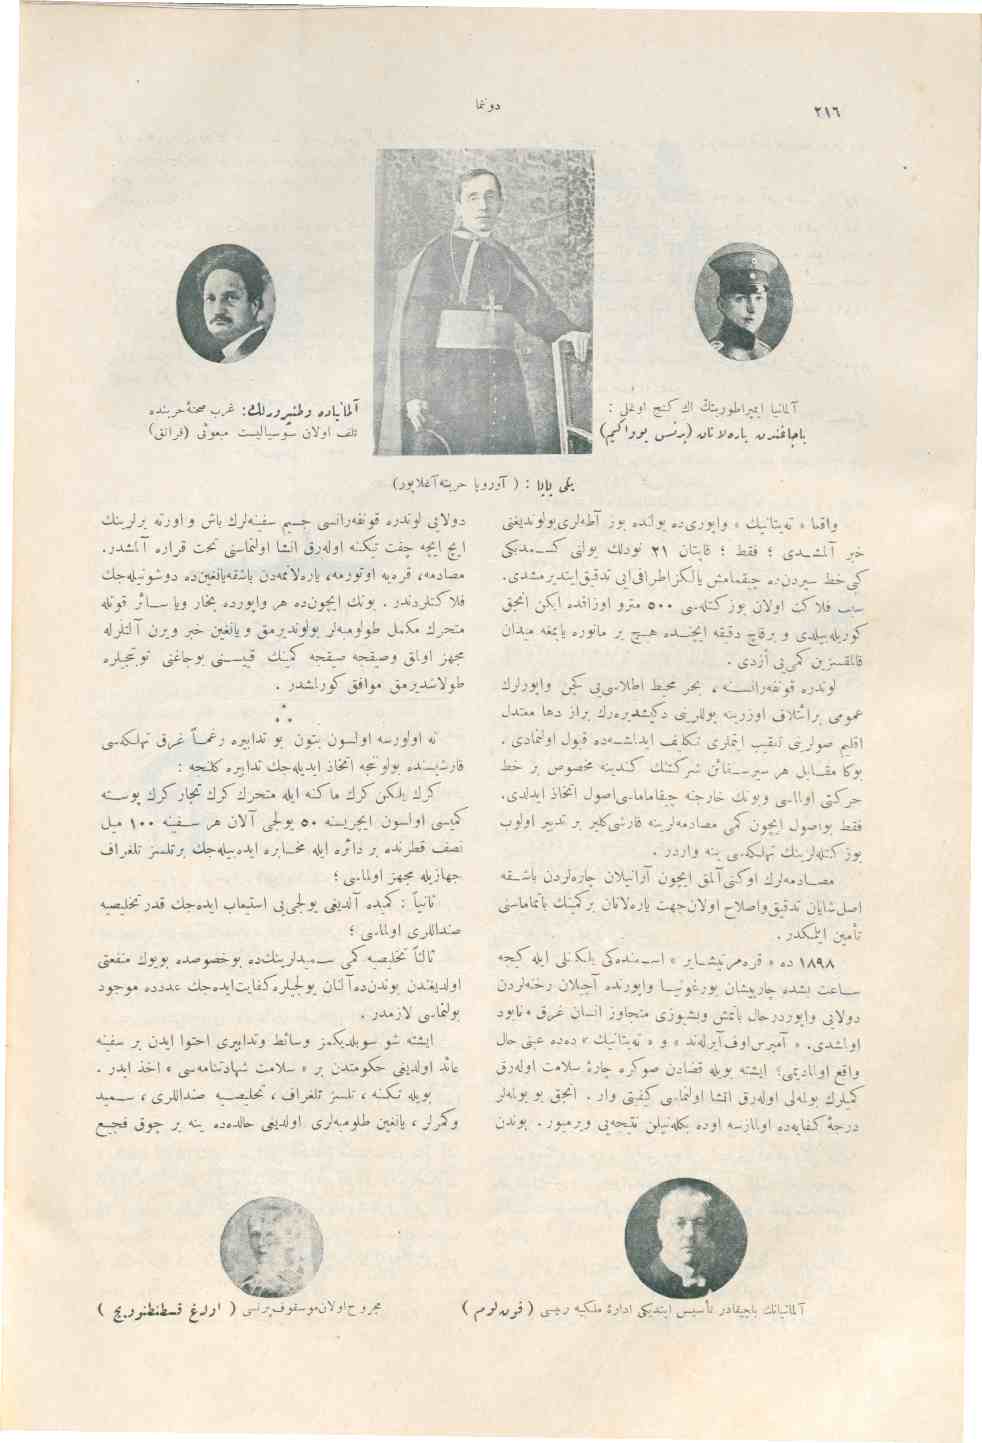 ٢١٦
دونما
آلمانیا ایمپراطورینك اك كنج اوغلی :
باجاغندن یاره‌لانان (پرنس یوواکیم)
آلمانیاده وطنپرورلك: غرب صحنۀ حربنده
تلف اولان سوسیالیست مبعوثی (فرانق)
یکی پاپا : ( آوروپا حربنه آغلایور)
واقعا « ته‌یتانیك » واپوری‌ده یولنده بوز آطه‌لری بولوندیغنی
خبر آلمشدی ؛ فقط ؛ قاپتان ٢١ نودلك یولنی کسمدیکی
کبی خط سیرندن‌ده چیقمامش یالکز اطرافی ایی تدقیق ایتدیرمشدی.
سبب فلاکت اولان بوز کتله‌سی ٥٠٠ مترو اوزاقده ایکن آنجق
کوریله‌بیلدی و برقاچ دقیقه ایچنده هیچ بر مانوره یاپمغه میدان
قالمقسزین کمی‌یی ازدی .
لوندره قونفه‌رانسنه ، بحر محیط اطلاسی‌یی کچن واپورلرك
عمومی برائتلاف اوزرینه یوللرینی دکیشدیره‌رك براز دها معتدل
اقلیم صولرینی تعقیب ایتملری تکلیف ایدلمشسه‌ده قبول اولنمادی .
بوکا مقابل هر سیرسفائن شرکتنك کندینه مخصوص بر خط
حرکتی اولماسی وبونك خارجنه چیقامامسی اصول اتخاذ ایدلدی.
فقط بواصول ایچون کمی مصادمه‌لرینه قارشی کلیر بر تدبیر اولوب
بوز کتله‌لرینك تهلکه‌سی ینه واردر .
مصادمه‌لرك اوکنی آلمق ایچون آرانیلان چاره‌لردن باشقه
اصل شایان تدقیق واصلاح اولان جهت یاره‌لانان برکمینك باتماماسنی
تأمین ایتمکدر .
١٨٩٨ ده « قره‌مرتیشایر » اسمنده‌کی یلکنلی ایله کیجه
ساعت بشده چارپیشان بورغونیا واپورنده آچیلان رخنه‌لردن
دولایی واپور درحال باتمش وبشیوزی متجاوز انسان غرق و نابود
اولمشدی. « آمپرس اوف آیرله‌ند » و « ته‌یتانیك » ده‌ده عینی حال
واقع اولمادیمی؟ ایشته بویله قضادن صوکره چارۀ سلامت اوله‌رق
کمیلرك بولمه‌لی اوله‌رق انشا اولنماسی کیفیتی وار . آنجق بو بولمه‌لر
درجۀ کفایه‌ده اولمازسه اوده بکله‌نیلن نتیجه‌یی ویرمیور . بوندن
دولایی لوندره قونفه‌رانسی جسیم سفینه‌لرك باش و اورته یرلرینك
ایچ ایچه چفت تیکنه اوله‌رق انشا اولنماسنی تحت قراره آلمشدر.
مصادمه، قره‌یه اوتورمه، یاره‌لانمه‌دن باشقه یانغین‌ده دوشونیله‌جك
فلاکتلردندر . بونك ایچون‌ده هر واپورده بخار ویا سائر قوتله
متحرك مکمل طولومبه‌لر بولوندیرمق و یانغین خبر ویرن آلتلرله
مجهز اولمق وصیقجه صیقجه کمینك قیینی بوجاغنی نوبتجیلره
طولاشدیرمق موافق کورلمشدر .
٭ ٭ ٭
نه اولورسه اولسون بتون بو تدابیره رغماً غرق تهلکه‌سی
قارشیسنده بولونجه اتخاذ ایدیله‌جك تدابیره کلنجه :
کرك یلکن کرك ماکنه ایله متحرك کرك تجار کرك پوسته
کمیسی اولسون ایچریسنه ٥٠ یولجی آلان هر سفینه ١٠٠ میل
نصف قطرنده بر دائره ایله مخابره ایده‌بیله‌جك برتلسز تلغراف
جهازیله مجهز اولماسی ؛
ثانیاً : کمیده آلدیغی یولجی‌یی استیعاب ایده‌جك قدر تخلیصیه
صنداللری اولماسی ؛
ثالثاً تخلیصیه کمی سمیدلرینك‌ده بوخصوصده بویوك منفعتی
اولدیغندن بوندن‌ده آلنان یولجیلره کفایت ایده‌جك عددده موجود
بولنماسی لازمدر .
ایشته شو سویلدیکمز وسائط وتدابیری احتوا ایدن بر سفینه
عائد اولدیغی حکومتدن بر « سلامت شهادتنامه‌سی » اخذ ایدر .
بویله تکنه ، تلسز تلغراف ، تخلیصیه صنداللری ، سمید
وکمرلر ، یانغین طلومبه‌لری اولدیغی حالده‌ده ینه بر چوق فجیع
آلمانیانك بلچیقادر تأسیس ایتدیکی ادارۀ ملکیه رئیسی ( فون لوم )
مجروح اولان موسقوف پرنسی ( اولغ قسطنطنوویچ )